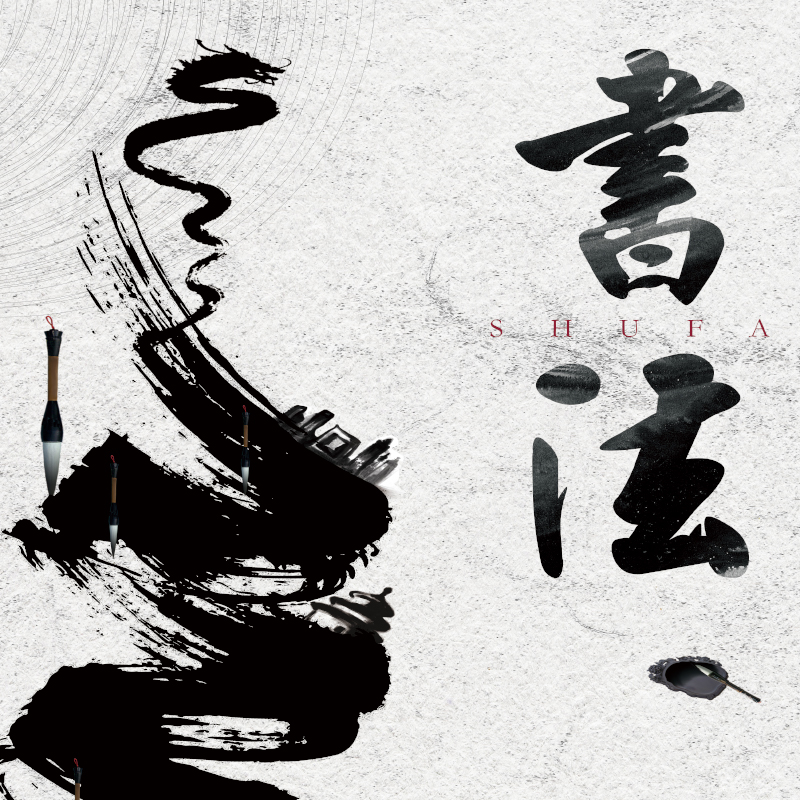 書
SHUFA
法